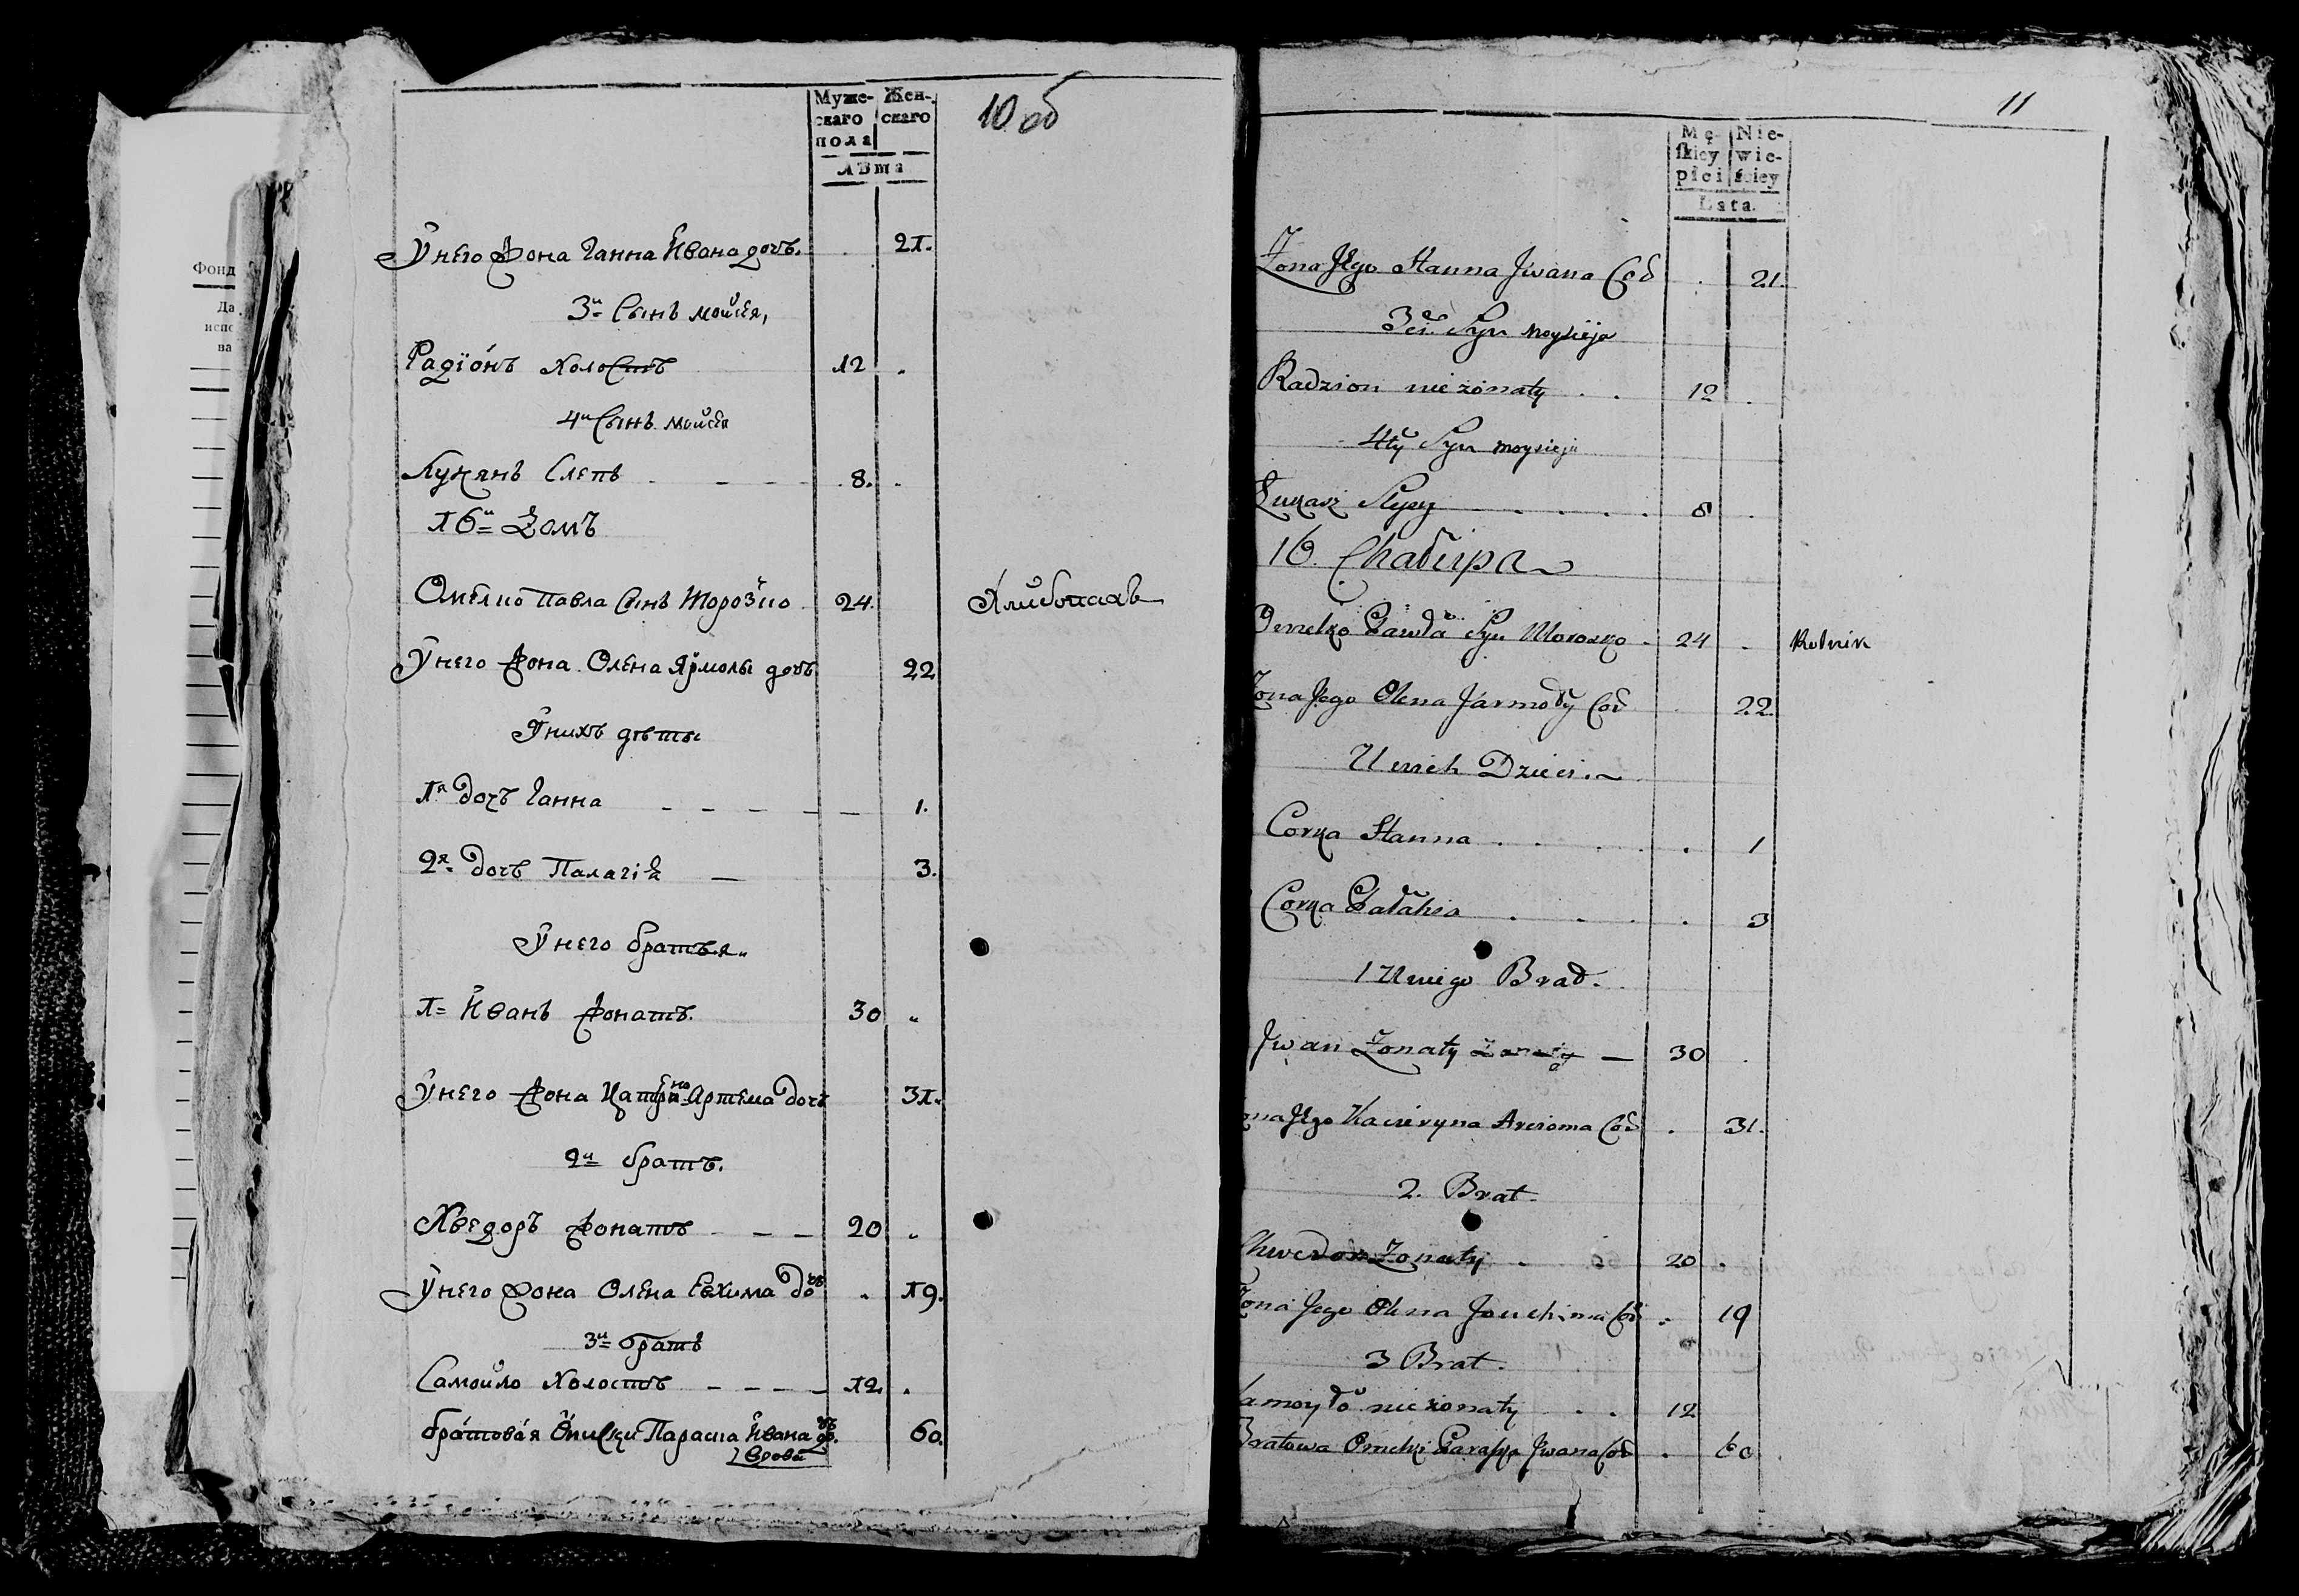 Фонд
Да
испо
ва
Муже- Жен-
скаго скаго
пола
лѣта
10 об
Унего жона Ганна Ивана дочъ. 21.
3й Сынъ мойсея,
Радіонъ холостъ 12
4й Сынъ мойсея
Лукянъ Слепъ 8.
16й Домъ
Омелко Павла Сынъ Морозко 24. Хлибопахъ
Унего жона Олена Ярмолы дочъ 22
Унихъ дѣты
1я дочъ Ганна 1.
2я дочъ Палагія 3.
Унего братья
1= Иванъ жонатъ. 30
Унего жона Катерина Артема дочъ 31.
2й братъ.
Хведоръ жонатъ 20
Унего жона Олена Евхима доч 19.
3й братъ
Самойло холостъ 12.
братовая Параска Ивана доч. 60.
вдова
11
Mę- Nie-
skiey wie-
płci sciey
Lata.
Zona Jego Hanna Jwana Cod 21.
3ci Syn moysieja
Radzion niezonaty 12
4ty Syn moysieja
Łukasz Slyey 8
16. Chałupa
Omelko Pawła Syn Morozko 24 Rolnik
Zona Jego Olena Jarmoły Cod 22
U nich Dzieci.
Corka Hanna 1
Corka Pałahia 3
1 U niego Brad.
Jwan Zonaty 30
ona Jego Kacieryna Arcioma Cod 31.
2. Brat.
Chwedor Zonaty 20
Zona Jego Olena Jouchima Cod 19
3 Brat.
Samoyło niezonaty 12
Bratowa Paraska Jwana Cod 60